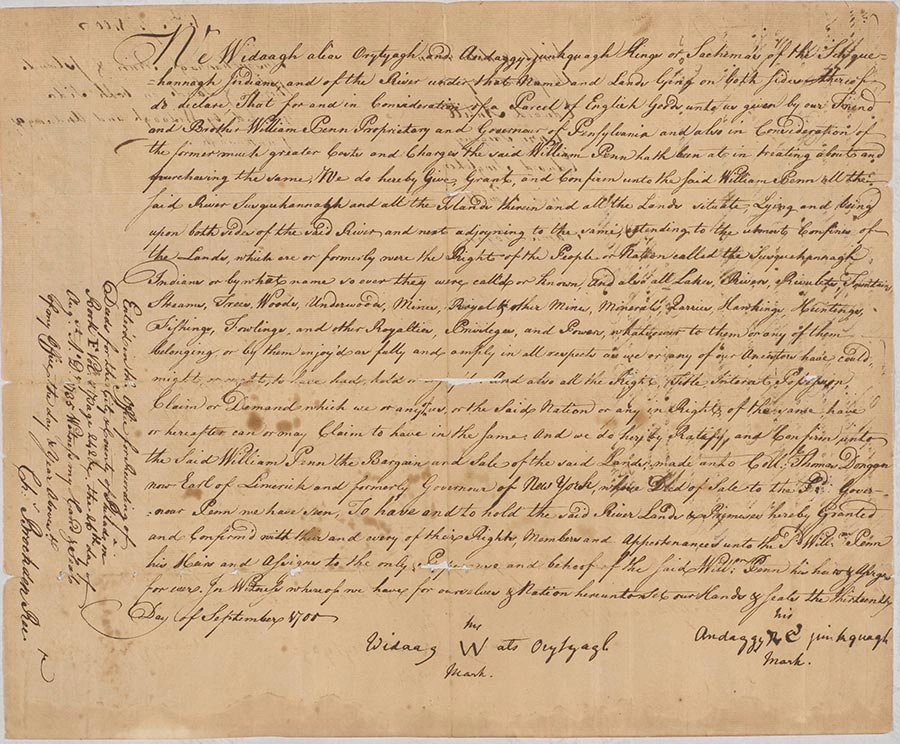 We Widaagh alias Orytyagh and Andaggy-junkquagh Kings or Sachemas of the Susque-
=hannagh Indians and of the River under that Name and Lands Lying on both sides thereof
do declare That for and in Consideration of a Parcel of English Goods unto us given by our Friend
and Brother William Penn Proprietary and Governour of Pensylvania and also in Consideration of
the former much greater Costs and Charges the said William Penn hath been at in treating about and
purchasing the same, We do hereby Give, Grant, and Confirm unto the said William Penn all the
said River Susquehannagh and all the Islands therein and all the Lands situate Lying and being
upon both sides of the said River and next adjoyning to the same extending to the utmost Confines of
the Lands which are or formerly were the Right of the People or Nation called the Susquehannagh
Indians or by what name so ever they were called or known, And also all Lakes, Rivers, Rivulets, Fountains
Streams, Trees, Woods, Underwoods, Mines, Royal & other Mines, Minerals, Quarries, Hawkings, Huntings,
Fishings, Fowlings, and other Royalties Privileges, and Powers, whatsoever to them or any of them
belonging or by them enjoy'd as fully and amply in all respects as we or any of our Ancestors have could
might, or ought, to have had, held or And also all the Right, Title Interest Possession,
Claim or Demand which we or any of us, or the said Nation or any in Right of the same have
or hereafter can or may Claim to have in the same. And we do hereby Ratify, and Confirm unto
the said William Penn the Bargain and Sale of the said Lands made unto Coll. Thomas Dongan
now Earl of Limerick and formerly Governour of New York, whose Deed of Sale to the Sd. Gover-
-nour Penn we have seen, To have and to hold the said River Lands & Premises hereby Granted
and Confirmd with their and every of their Rights, Members and Appurtenances unto the Sd. Willm. Penn
his Heirs and Assigns to the only use and behoof of the said Willm. Penn his heirs & Assigns
for ever. In Witness whereof we have for ourselves & Nation hereunto set our Hands & Seales the thirteenth
Day of September 1700
his
Widaag W ats Orytyagh
Mark.
his
Andaggy junkquagh
Mark.
Enterd in the Office for Recording of
Deeds for the City & County of Philadia. in
Book F Vol. 8 page 242 &c. the 26th day of
Aug. A. D. 1735 Witness my hand & Seal
of my Office the day & year above sd.
C. Brockden Recr